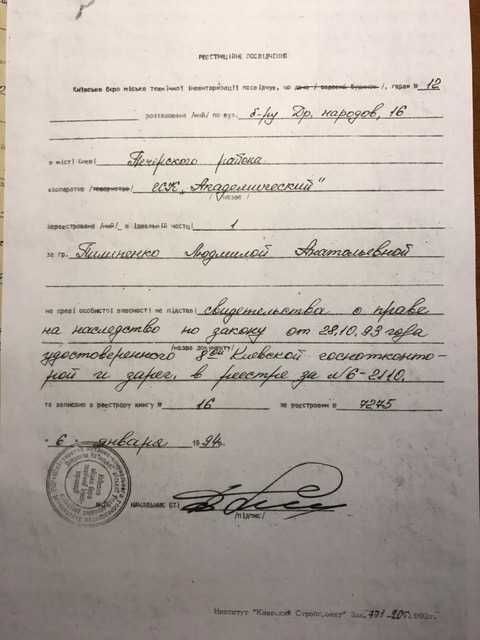 РЕЄСТРАЦІЙНЕ ПОСВІДЧЕННЯ
Київське бюро міське технічної інвентаризації посвідчує, що дача / садовий будинок /, гараж № 12
розташована /ний/ по вул. б-ру Др. народов, 16
в місті Києві Печерского района
кооператив /товариство/ ЖСК „Академический"
/ назва /
зареєстрована /ний/ в ідеальній частці 1
за гр. Пилипенко Людмилой Анатольевной
на праві особистої власності на підставі свидетельства о праве
на наследство по закону от 28.10.93 года
/назва документу/
удостоверенного 8ой Киевской госнотконто-
рой и зарег. в реестре за №6-2110.
та записано в реєстрову книгу № 16 за реєстровим № 7275
" 6 " января 1994г.
НАЧАЛЬНИК БТІ
/підпис/
Институт "Киевский Стройпроект" Зак.